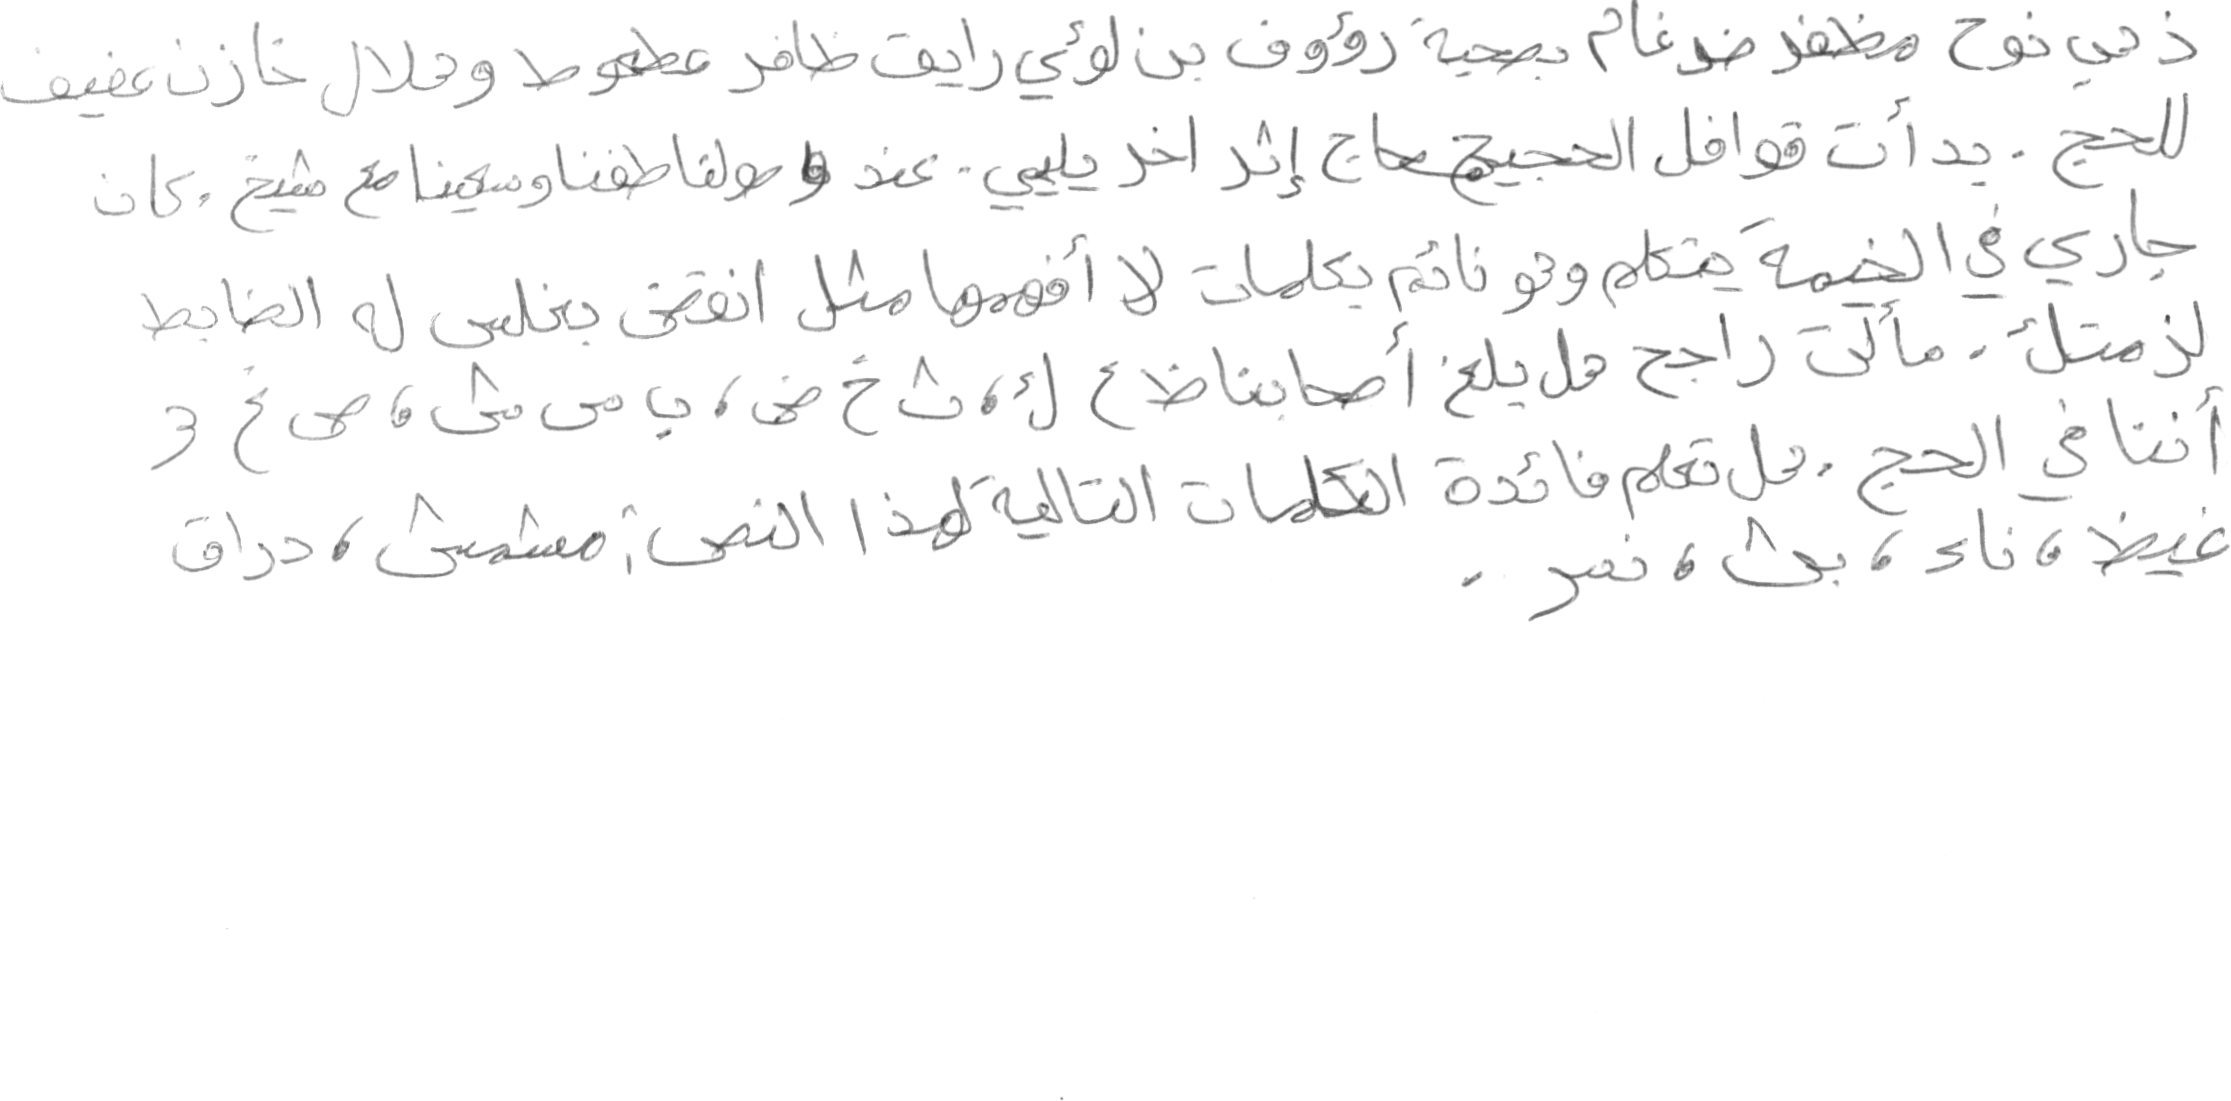 ذهب نوح مظفر ضرغام بصحبة رؤوف بن لؤي رايق ظافر عطعوط وهلال خازن عفيف
للحج . بدأت قوافل الحجيج حاج إثر اخر يلبي . عند وصولنا طفنا وسعينا مع شيخ . كان
جاري في الخيمة يتكلم وهو نائم بكلمات لا أفهمها مثل انقض بنلس له الضابط
لزمتك . سألت راجح هل بلغ أصحابنا ظ ع ك ، ث خ ض ، ب س ش ، ص غ و
أننا في الحج . هل تعلم فائدة الكلمات التالية لهذا النص ؛ مشمش ، دراق
غيظ ، ناء ، بث ، نسر .